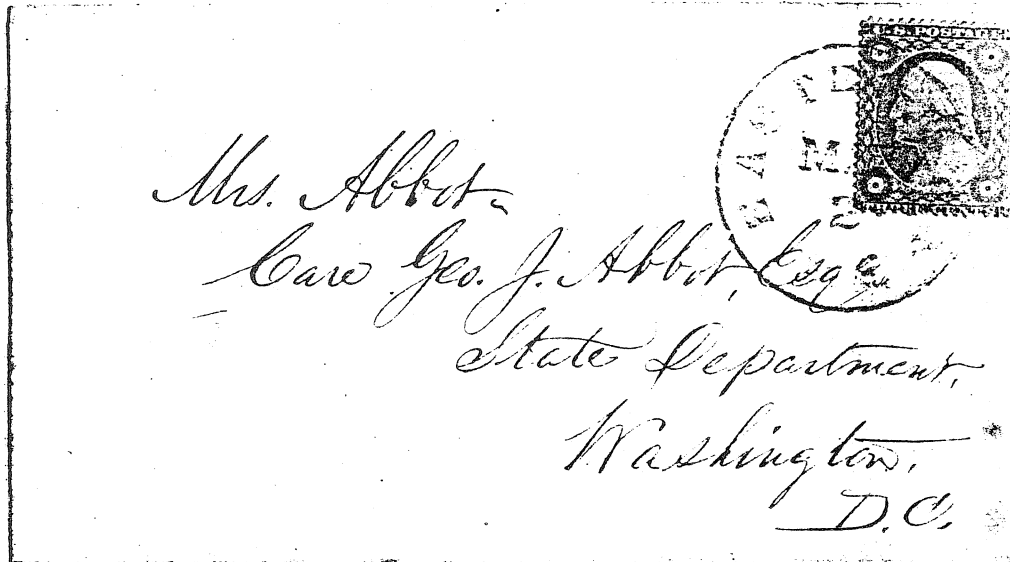 U.S. POSTAGE
Mrs. Abbot
Care Geo. J. Abbot, Esq
State Department,
Washington,
D.C.